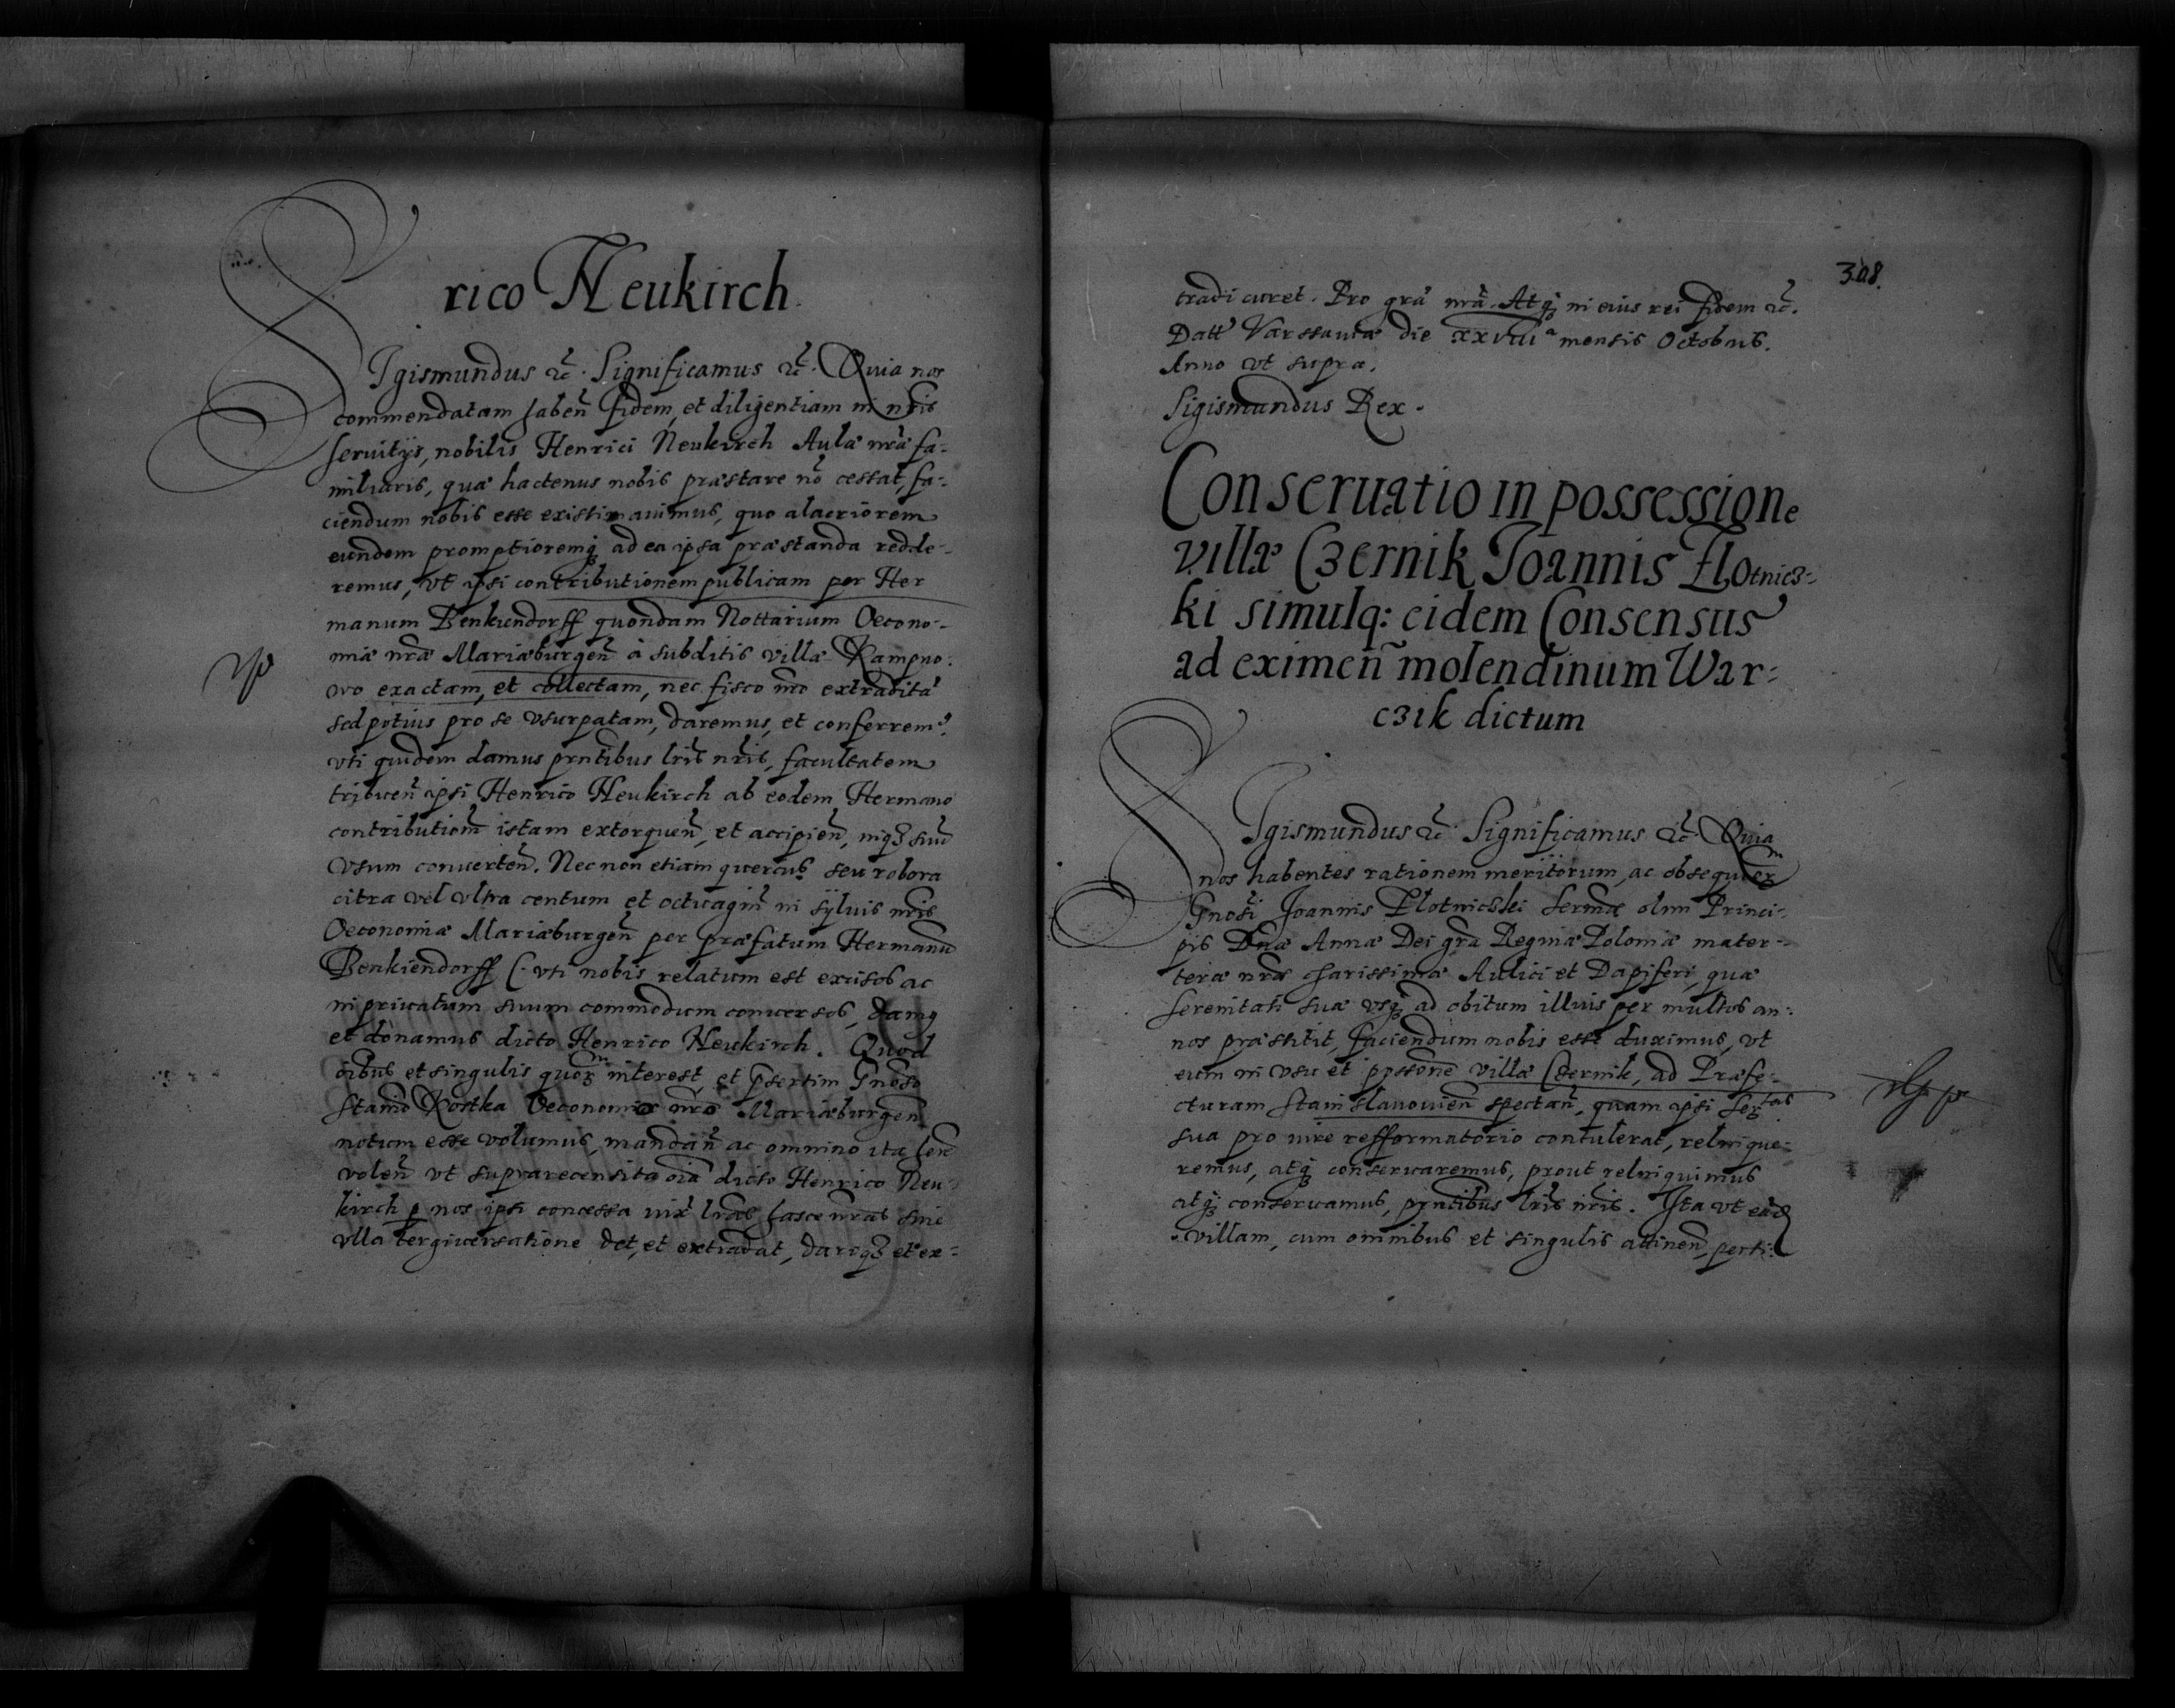 rico Neukirch.
SIgismundus &c. Significamus &c. Quia nos
commendatam haben̄ fidem, et diligentiam in nr̄is
seruitijs, nobilis Henrici Neukirch Aulæ nrǣ fa-
miliaris, quæ hactenus nobis præstare nō cessat, fa-
ciendum nobis esse existimauimus, quo alacriorem
eundem promptioremq; ad ea ipsa præstanda redde-
remus, vt ipsi contributionem publicam per Her
manum Benkendorff quondam Nottarium Oecono-
miæ nrǣ Mariæburgen̄ à subditis villæ Kampno-
wo exactam, et collectam, nec fisco nrō extraditā
sed potius pro se vsurpatam, daremus, et conferrem9,
vti quidem damus prn̄tibus lrīs nrīs, facultatem
tribuen̄ ipsi Henrico Neukirch ab eodem Hermano
contributionē istam extorquen̄, et accipien̄, inq3 suū
vsum conuerten̄. Nec non etiam quercus seu robora
citra vel vltra centum et octuagin̄ in syluis nrīs
Oeconomiæ Mariæburgen̄ per præfatum Hermanū
Benkiendorff (: vti nobis relatum est excisos ac
in priuatum suum commodum conuersos, damq
et donamus dicto Henrico Neukirch. Quod
oībus et singulis quor3 interest, et p̄sertim Gnōso
Stanīo Kostka Oeconomo nrō Mariæburgen̄
notum esse volumus, mandan̄ ac omnino ita
volen̄ vt supra recensita oīa dicto Henrico Neu
kirch p nos ipsi concessa iuxtā lrās hasce nrās sine
vlla tergiuersatione det, et extradat, dariq3 et ex-
308.
tradi curet. Pro grā nrā. Atq; in eius rei fidem &c.
Datt Varssauiæ die xxviiia mensis Octobris.
Anno vt supra.
Sigismundus Rex.
Conseruatio in possessione
villæ Czernik Joannis Plotnics-
ki simulq: eidem Consensus
ad eximen̄ molendinum War-
czik dictum
SIgismundus &c. Significamus &c. Quia
nos habentes rationem meritorum, ac obsequior3
Gnōsi Joannis Plotnicski Sermǣ olim Princi-
pis Dnǣ Annæ Dei grā Reginæ Poloniæ mater-
teræ nrǣ charissimæ Aulici et Dapiferi, quæ
Serenitati suæ vsq; ad obitum illius per multos an-
nos præstitit, faciendum nobis esse duximus, vt
eum in vsu et possonē villæ Czernik, ad Præfe-
cturam Stanislauouien̄ spectan̄, quam ipsi Ser3tas
sua pro iure refformatorio contulerat, relinque-
remus, atq; conseruaremus, prout relinquimus
atq; conseruamus, prn̄tibus lrīs nrīs. Ita vt eād
villam, cum omnibus et singulis attinen̄, perti-